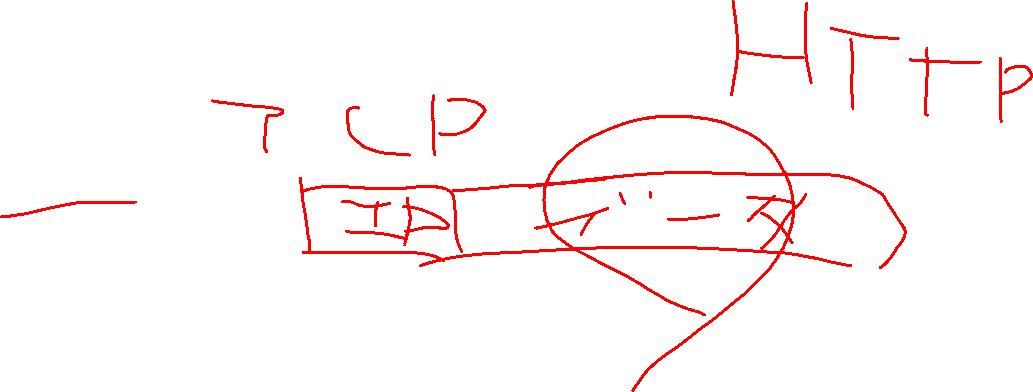 HTTP
TCP
ID データ